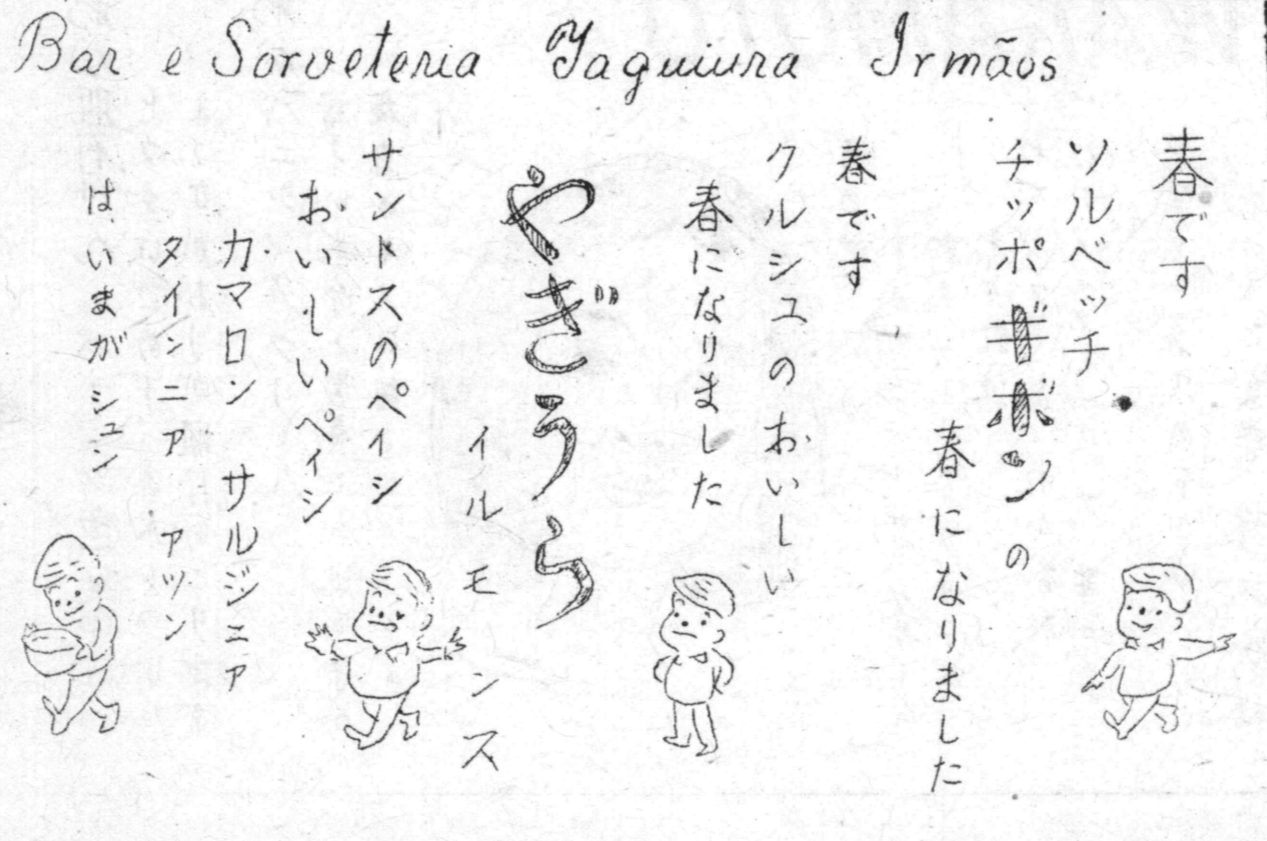 Bar e Sorveteria Yaguiura Irmãos
春です
ソルベッチ
チッポ ギボンの
春になりました
春です
クルシュのおいしい
春になりました
やぎうら
イルモンス
サントスのペイシ
おいしいペイシ
カマロン サルジニア
タインニア アツン
はいまがシュン